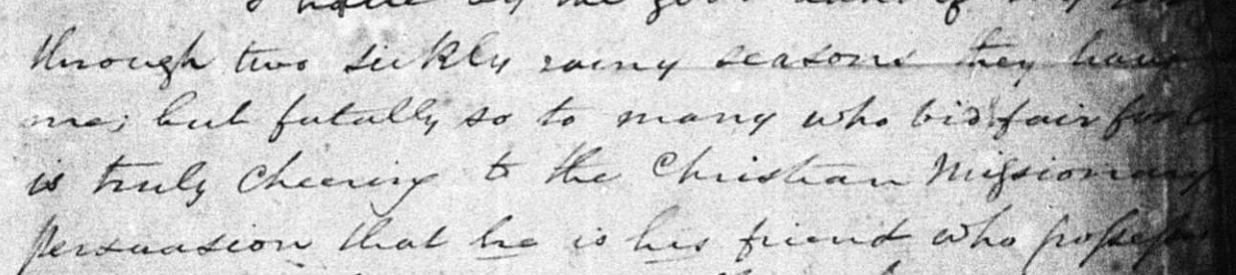 through two sickly rainy seasons they have
me; but fatally so to many who bid fair for
is truly cheering to the Christian Missionary
persuasion that he is his friend who possesses